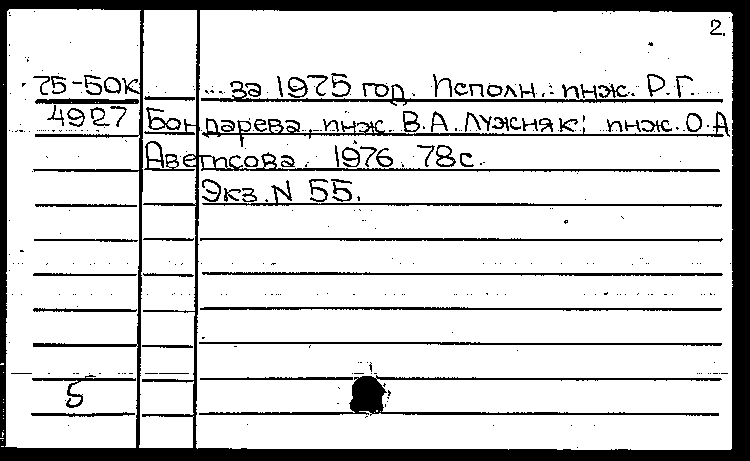 2.
75-50К ... за 1975 год. Исполн.: инж. Р.Г.
4927 Бондарева, инж. В.А. Лужняк; инж. О.А
Аветисова. 1976. 78с.
Экз. N 55.
5